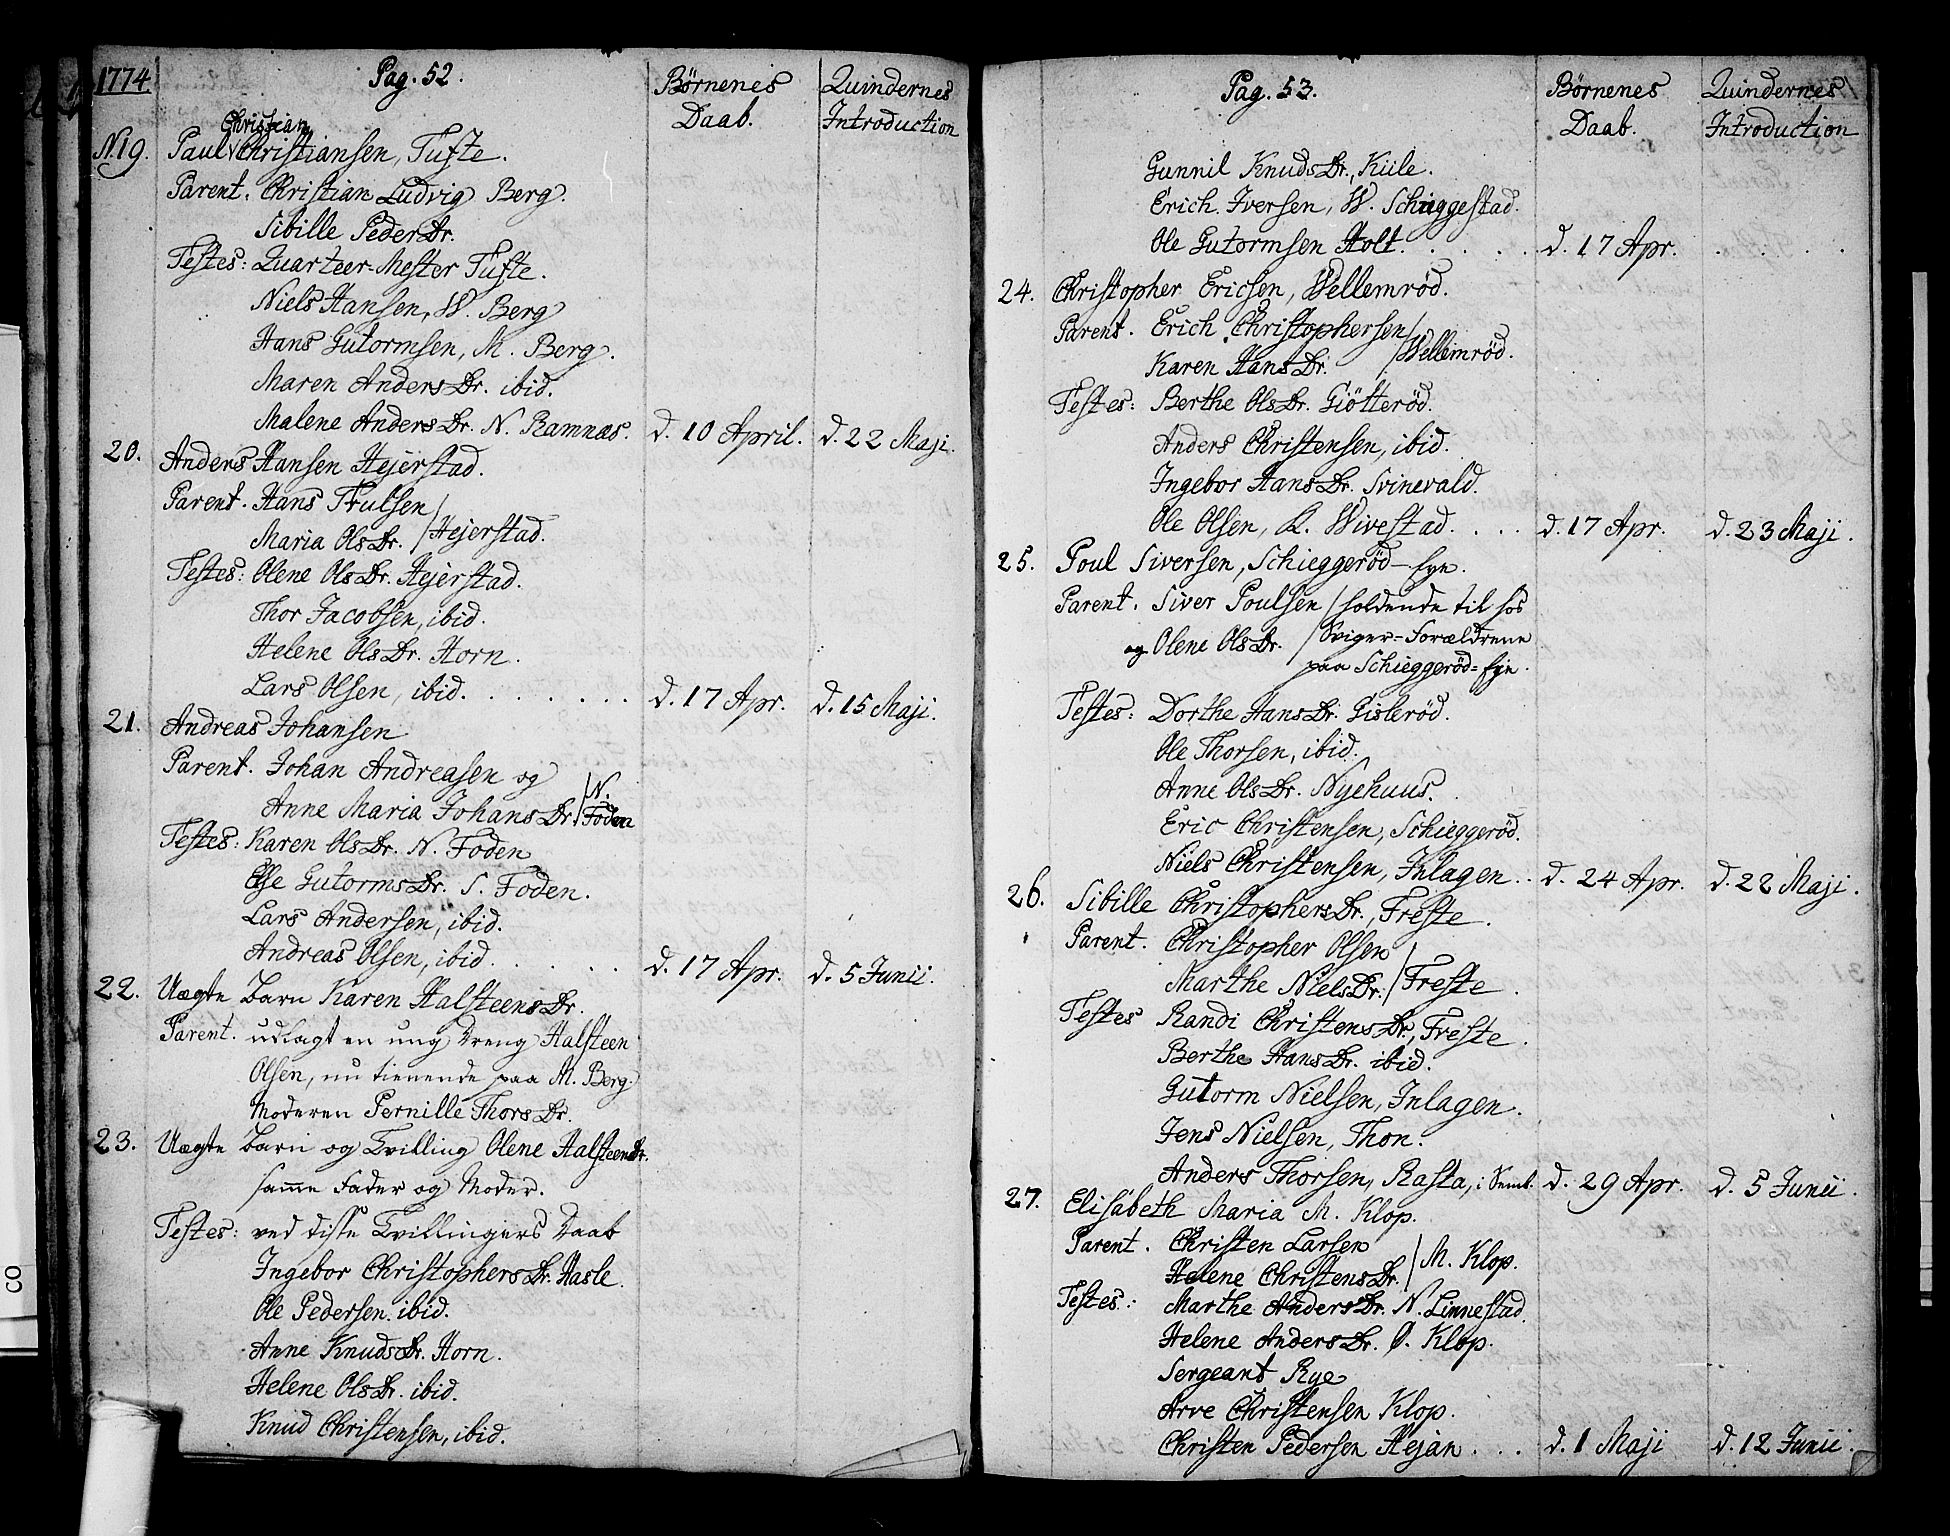 1774. Pag. 52. Børnenes Daab. Quindernes Introduction
Christian
N. 19. Paul Christiansen, Tufte.
Parent. Christian Ludvig Berg.
Sibille PedersDr.
Testes: Quarteer-Mester Tufte.
Niels Hansen, W. Berg
Hans Gutormsen, M. Berg.
Maren AndersDr. ibid.
Malene AndersDr. N. Ramnæs. d. 10 April. d. 22 Maji.
20. Anders Hansen Hejerstad.
Parent. Hans Trulsen
Maria OlsDr. / Hejerstad.
Testes: Olene OlsDr. Hejerstad.
Thor Jacobsen, ibid.
Helene OlsDr. Horn.
Lars Olsen, ibid. . . . . . . d. 17 Apr. d. 15 Maji.
21. Andreas Johansen
Parent. Johan Andreasen og
Anne Maria JohansDr. / N. Foden
Testes: Karen OlsDr. N. Foden
Else GutormsDr. S. Foden.
Lars Andersen, ibid.
Andreas Olsen, ibid. . . . . . d. 17 Apr. d. 5 Junii.
22. Uægte Barn Karen HalsteensDr.
Parent. udlagt en ung Dreng Halsteen
Olsen, nu tienende paa M. Berg.
Moderen Pernille ThorsDr.
23. Uægte Barn og Tvilling Olene HalsteensDr.
samme Fader og Moder.
Testes: ved disse Tvillingers Daab
Ingebor ChristophersDr. Hasle.
Ole Pedersen. ibid.
Anne KnudsDr. Horn.
Helene OlsDr. ibid.
Knud Christensen, ibid.
Pag. 53. Børnenes Daab. Quindernes Introduction
Gunnil KnudsDr., Kiile.
Erich Iversen, W. Schiggestad.
Ole Gutormsen Holt. . . . . d. 17 Apr. . . . .
24. Christopher Ericsen, Wellemrød.
Parent. Erich Christophersen /
Karen HansDr. / Wellemrød.
Testes: Berthe OlsDr. Giøtterød.
Anders Christensen, ibid.
Ingebor HansDr. Svinevald.
Ole Olsen, K. Wivestad. . . . d. 17 Apr. d. 23 Maji.
25. Poul Siversen, Schieggerød-Eye.
Parent. Siver Poulsen / holdende til hos
og Olene OlsDr. / Sviger-Forældrene
paa Schieggerød-Eye.
Testes: Dorthe HansDr. Gislerød.
Ole Thorsen, ibid.
Anne OlsDr. Nyehuus.
Eric Christensen, Schieggerød.
Niels Christensen, Inlagen. . d. 24 Apr. d. 22 Maji.
26. Sibille ChristophersDr., Freste.
Parent. Christopher Olsen
Marthe NielsDr. / Freste.
Testes Randi ChristensDr., Freste.
Berthe HansDr. ibid.
Gutorm Nielsen, Inlagen.
Jens Nielsen, Thon.
Anders Thorsen, Rasta, i Semb. d. 29 Apr. d. 5 Junii.
27. Elisabeth Maria M. Klop.
Parent. Christen Larsen
Helene ChristensDr. / M. Klop.
Testes: Marthe AndersDr. N. Linnestad.
Helene AndersDr. Ø. Klop.
Sergeant Rye
Arve Christensen Klop.
Christen Pedersen Hejan . . . d. 1 Maji d. 12 Junii.